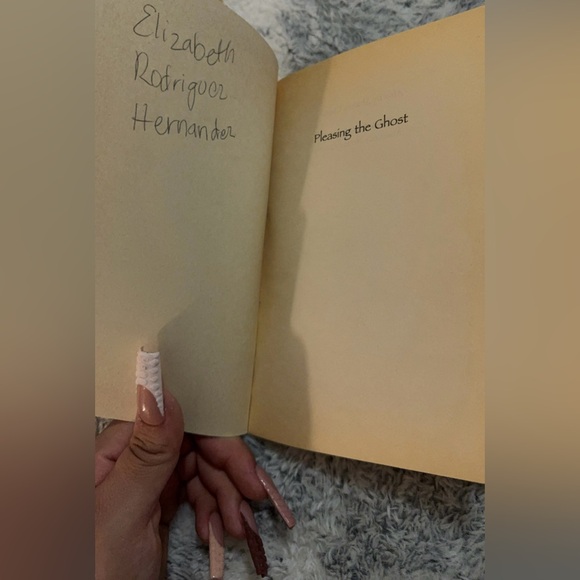 Elizabeth
Rodriguez
Hernandez
Pleasing the Ghost